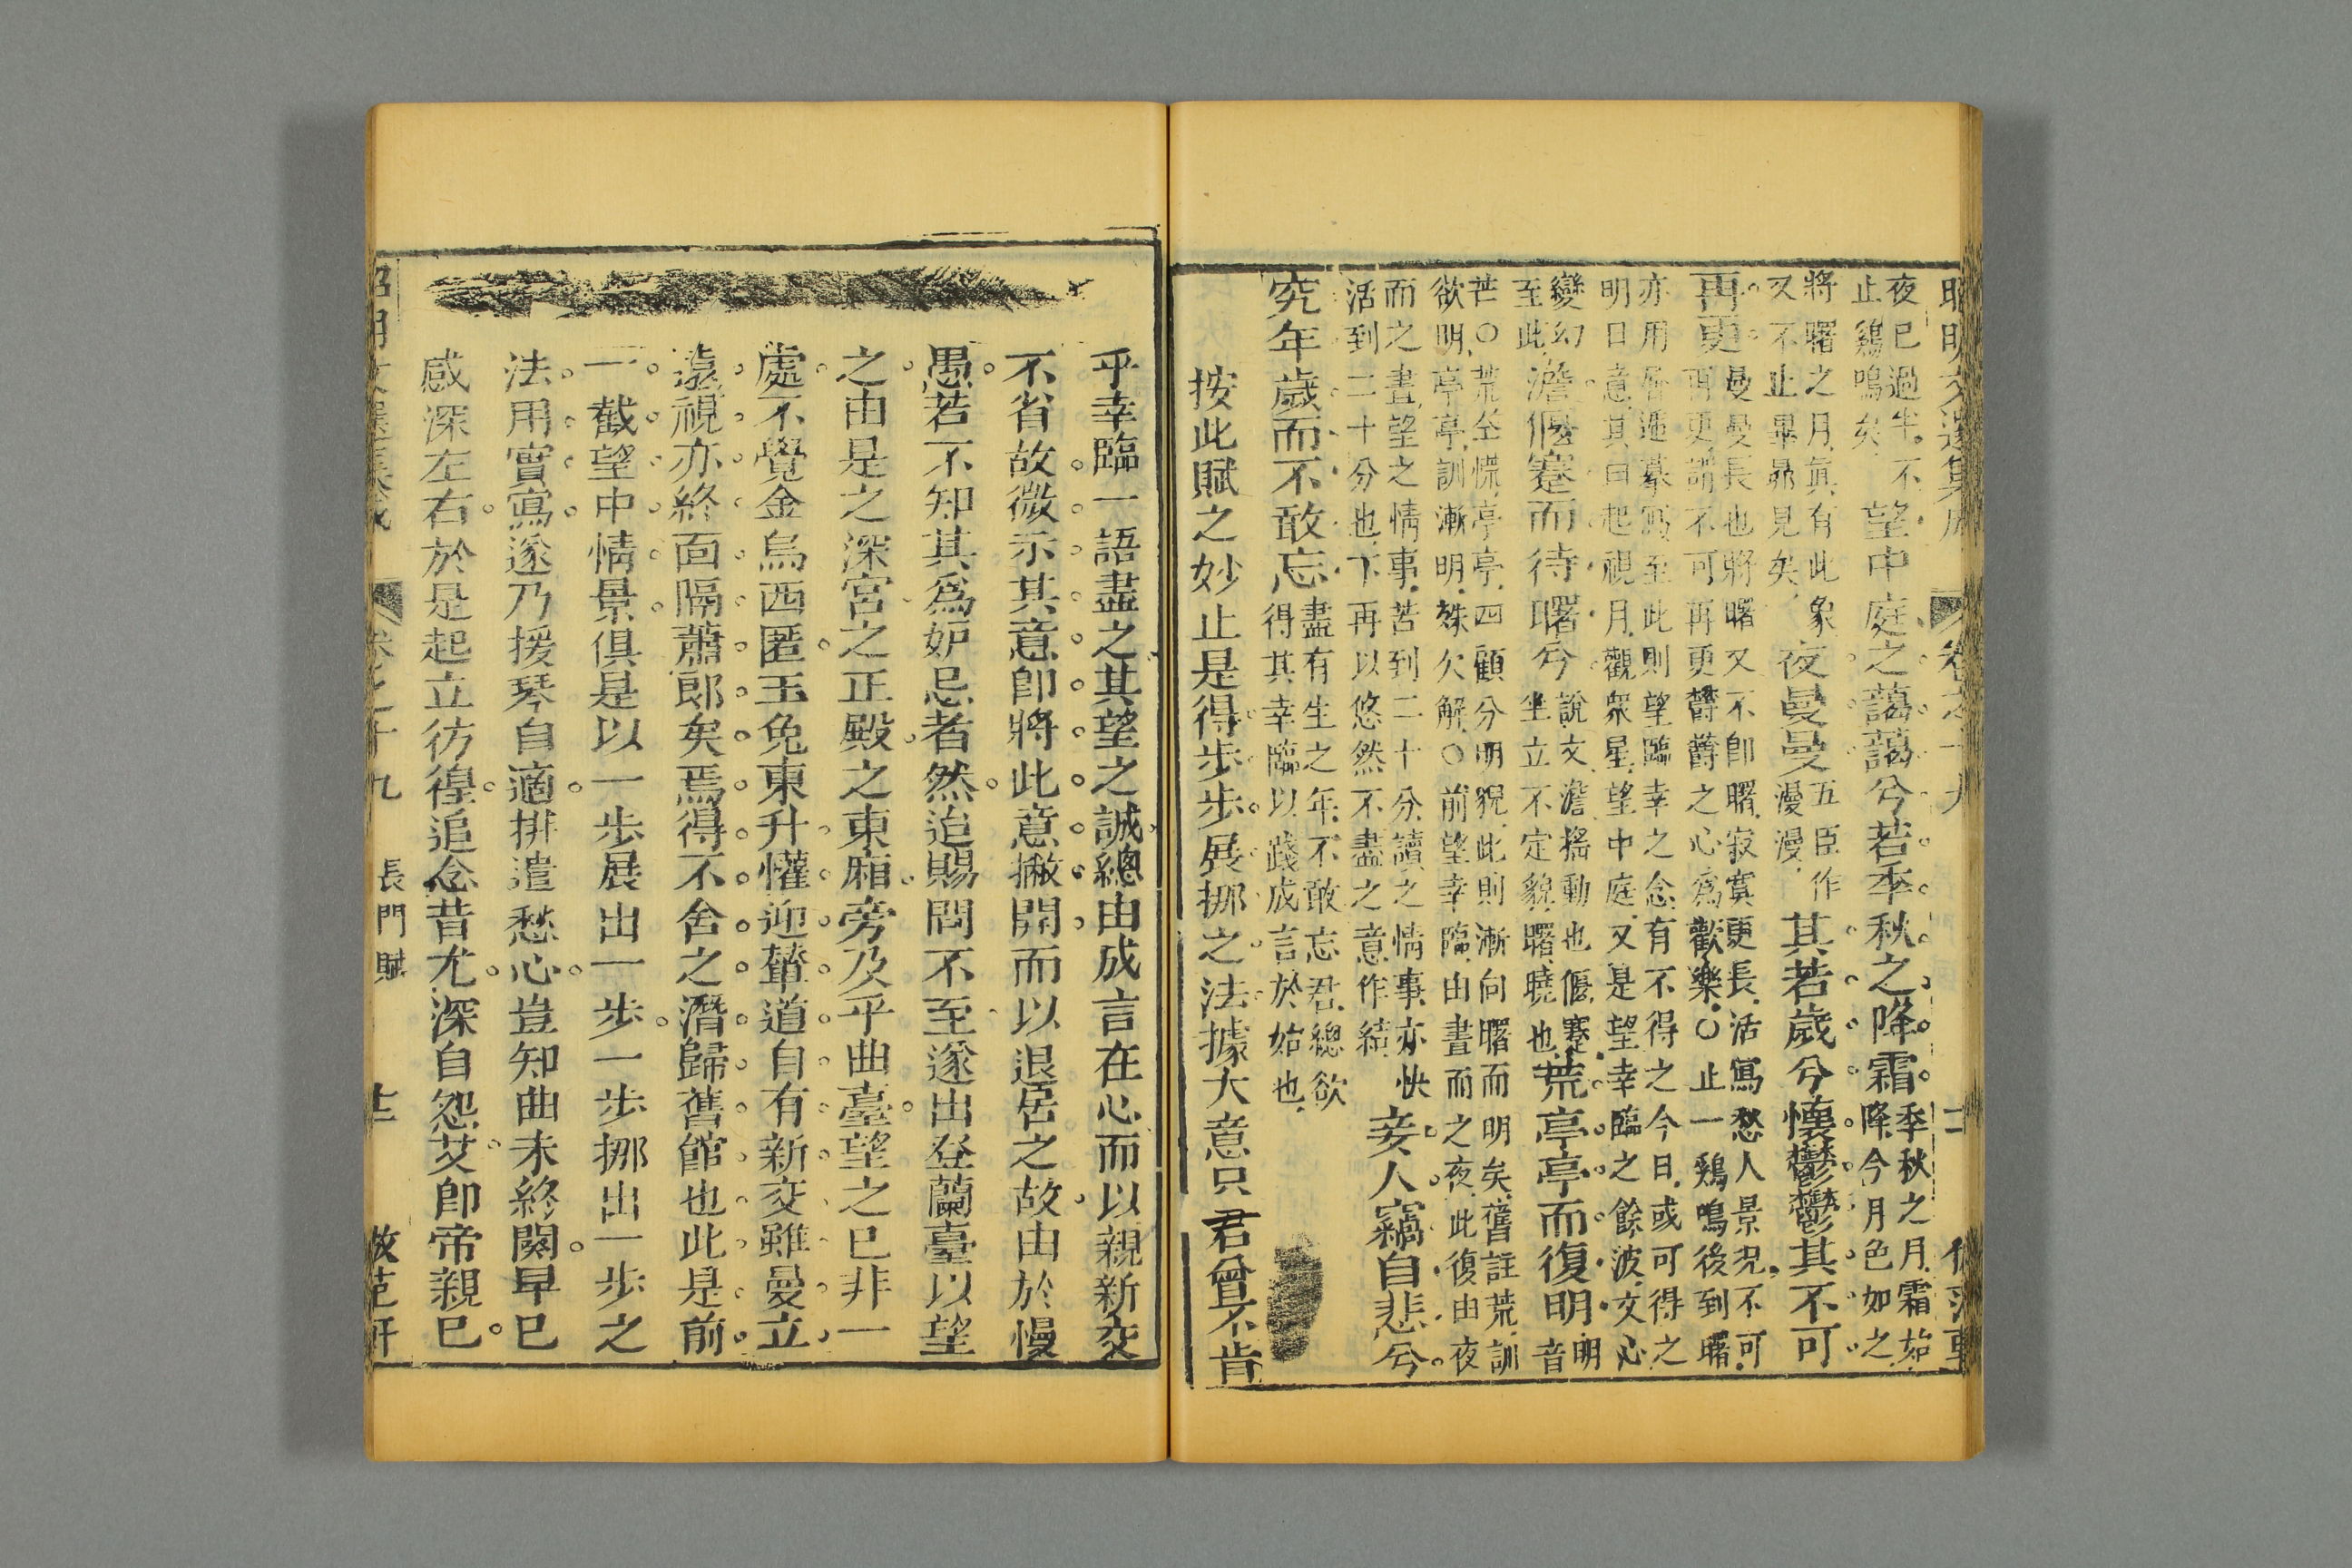 夜已過半。不止鷄鳴矣。望中庭之藹藹兮若季秋之降霜季秋之月霜始降今月色如之
將曙之月眞有此象又不止畢昴見矣夜曼曼五臣作漫漫其若歲兮懷鬱鬱其不可
再更曼曼長也將曙又不卽曙寂寞更長活寫愁人景況不可再更謂不可再更鬱鬱之心爲歡樂○止一鷄鳴後到曙
亦用層遞摹寫至此則望臨幸之念有不得之今日或可得之明日意其曰起視月觀衆星望中庭又是望幸臨之餘波文心
變幻至此澹偃蹇而待曙兮說文澹搖動也偃蹇坐立不定貌曙曉也荒亭亭而復明音
芒○荒全慌亭亭四顧分明貌此則漸向曙而明矣舊註荒訓欲明亭亭訓漸明殊欠解○前望幸臨由晝而之夜此復由夜
而之晝望之情事苦到二十分讀之情事亦快活到二十分也下再以悠然不盡之意作結妾人竊自悲兮
究年歲而不敢忘盡有生之年不敢忘君總欲得其幸臨以踐成言於始也
按此賦之妙止是得步步展挪之法據大意只君曾不肯
乎幸臨一語盡之其望之誠總由成言在心而以親新交
不省故微示其意卽將此意撇開而以退居之故由於慢
愚若不知其爲妒忌者然迨賜問不至遂出登蘭臺以望
之由是之深宮之正殿之東廂旁及乎曲臺望之已非一
處不覺金烏西匿玉兔東升懽迎輦道自有新交雖曼立
遠視亦終面隔蕭郎矣焉得不舍之潛歸舊館也此是前
一截望中情景俱是以一步展出一步一步挪出一步之
法用實寫遂乃援琴自適排遣愁心豈知曲未終闋早已
感深左右於是起立彷徨追念昔尤深自怨艾卽帝親已
卷之十九 長門賦